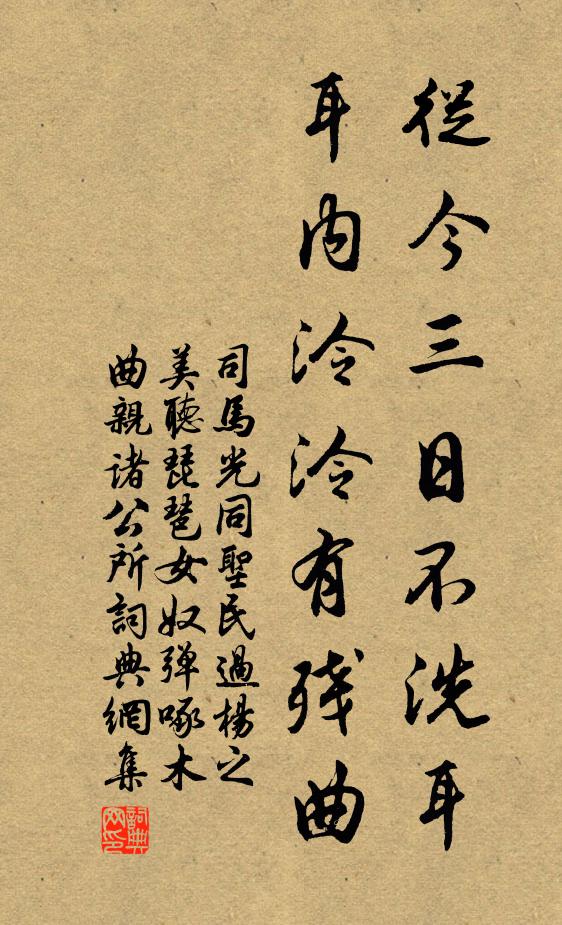 從今三日不洗耳
耳内泠泠有残曲
司馬光同聖民過楊之
美聽琵琶女奴弹啄木
曲親诸公所詞典網集
詞典
网印